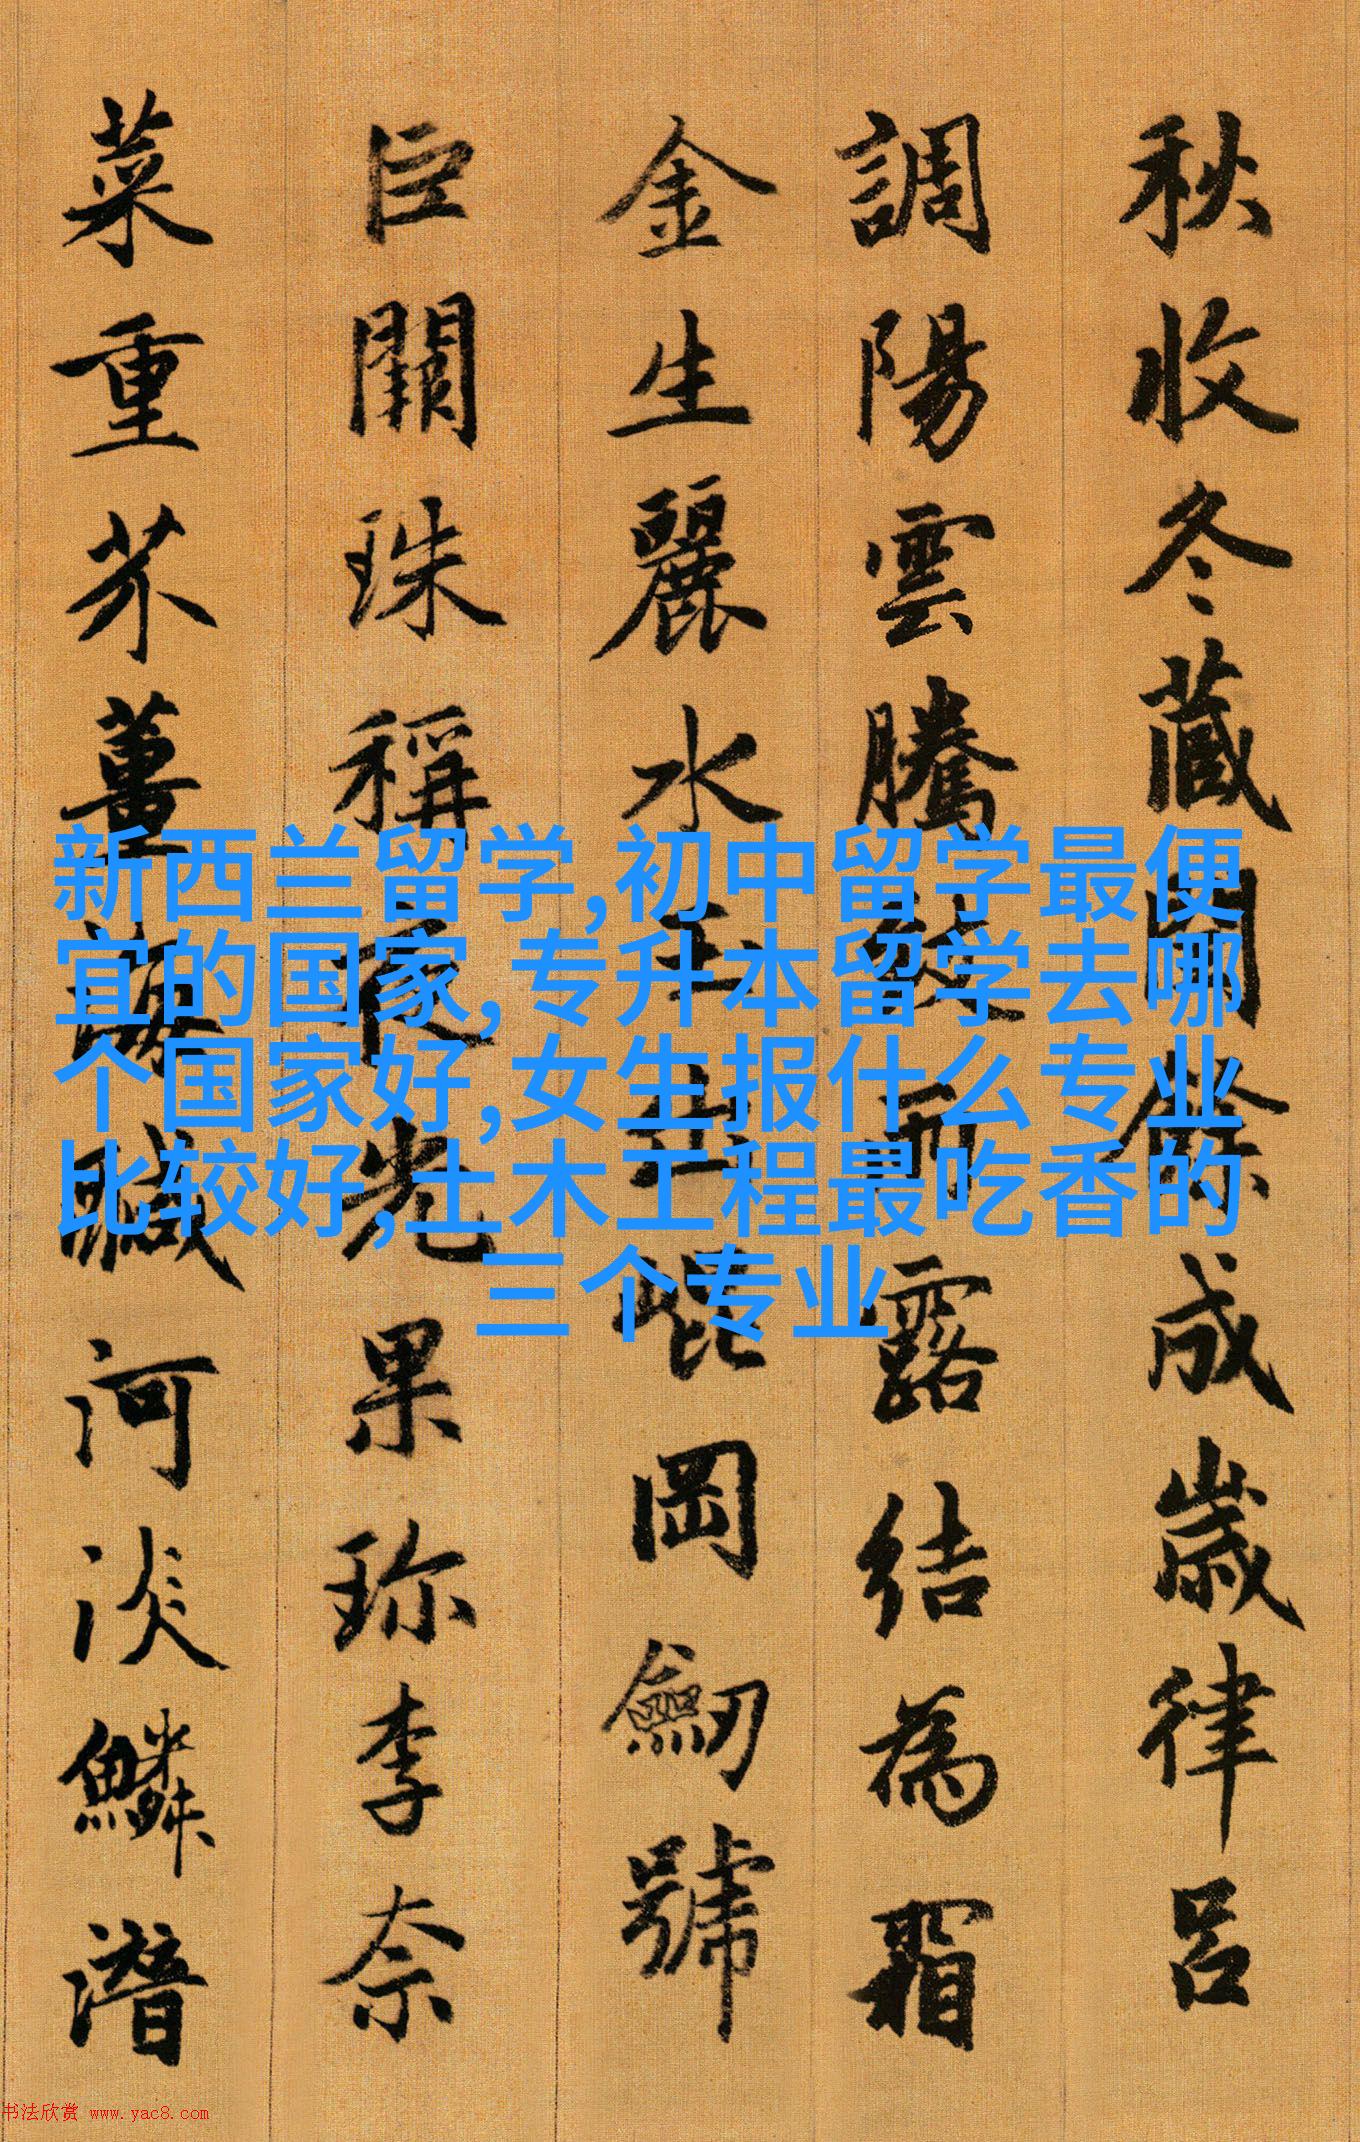 秋收冬藏閏餘成歲律呂
調陽雲騰致雨露結為霜
金生麗水玉出崐岡劒號
巨闕珠稱夜光果珍李奈
菜重芥薑海鹹河淡鱗潛
新西兰留学,初中留学最便
宜的国家,专升本留学去哪
个国家好,女生报什么专业
比较好,土木工程最吃香的
三个专业
书法欣赏 www.yac8.com